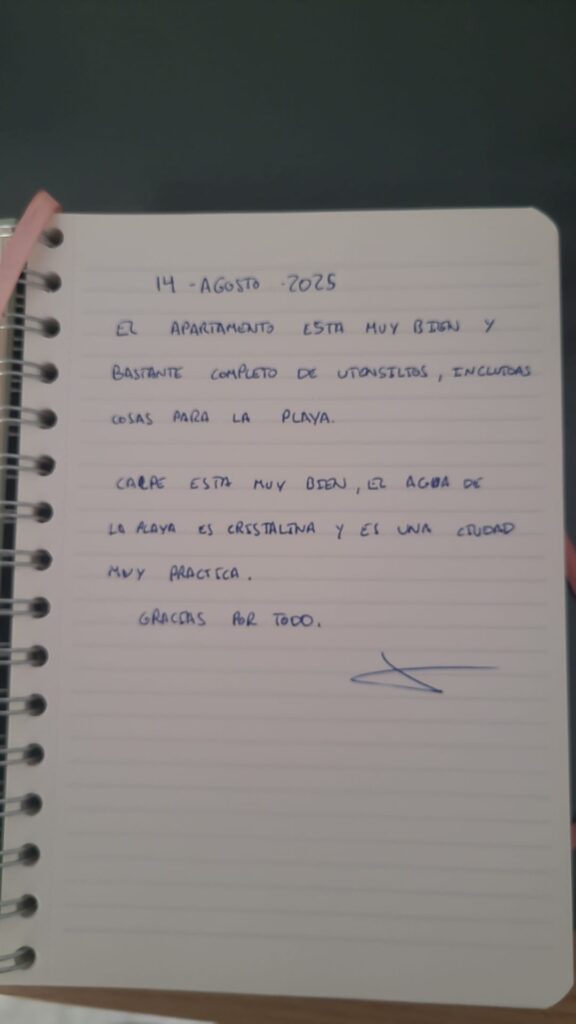 14 - AGOSTO - 2025
EL APARTAMENTO ESTA MUY BIEN Y
BASTANTE COMPLETO DE UTENSILIOS, INCLUIDAS
COSAS PARA LA PLAYA.
CALPE ESTA MUY BIEN, EL AGUA DE
LA PLAYA ES CRISTALINA Y ES UNA CIUDAD
MUY PRACTICA.
GRACIAS POR TODO.